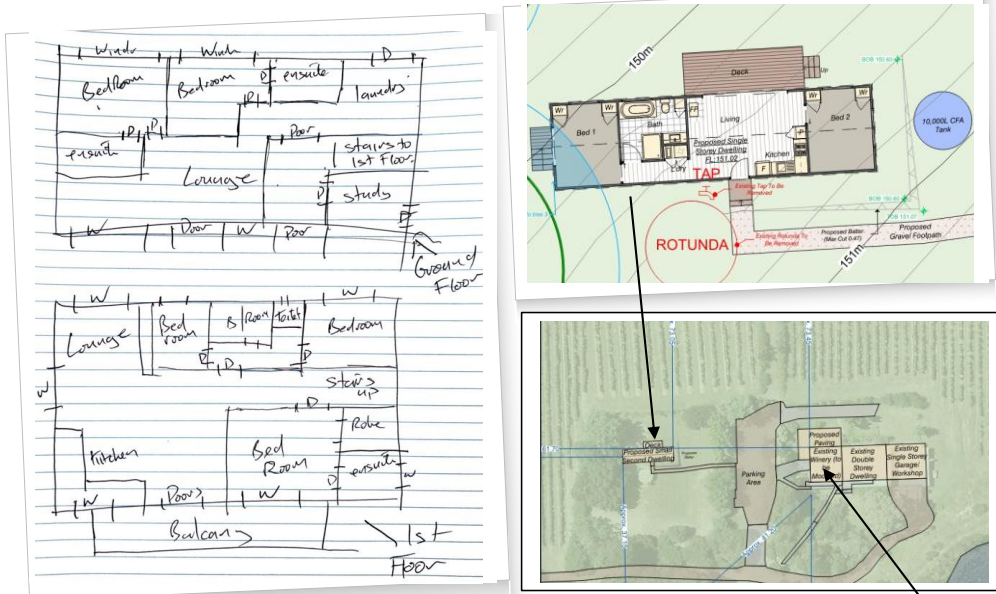 Window
BedRoom
Bedroom
D
ensuite
D
D
laundry
D
D
ensuite
Door
Lounge
stairs to
1st Floor.
D
study
W
Door
W
Door
D
Ground
Floor
W
W
Lounge
Bed
room
B
Room
Toilet
Bedroom
D
D
D
W
stairs
up
D
Robe
Kitchen
Bed
Room
ensuite
D
W
W
Doors
W
Balcony
1st
Floor
150m
Deck
Up
Wr
Wr
Bed 1
Bath
FP
Living
Wr
Wr
Bed 2
10,000L CFA
Tank
Proposed Single
Storey Dwelling
FL:151.02
L'dry
Kitchen
P
F
F
TAP
Existing Tap To Be
Removed
ROTUNDA
Existing Rotunda To
Be Removed
Proposed Batter
(Max Cut 0.47)
Proposed
Gravel Footpath
151m
Deck
Proposed Small
Second Dwelling
Parking
Area
Proposed
Paving
Existing
Winery (to
be
Existing
Double
Storey
Dwelling
Existing
Single Storey
Garage/
Workshop
61.70